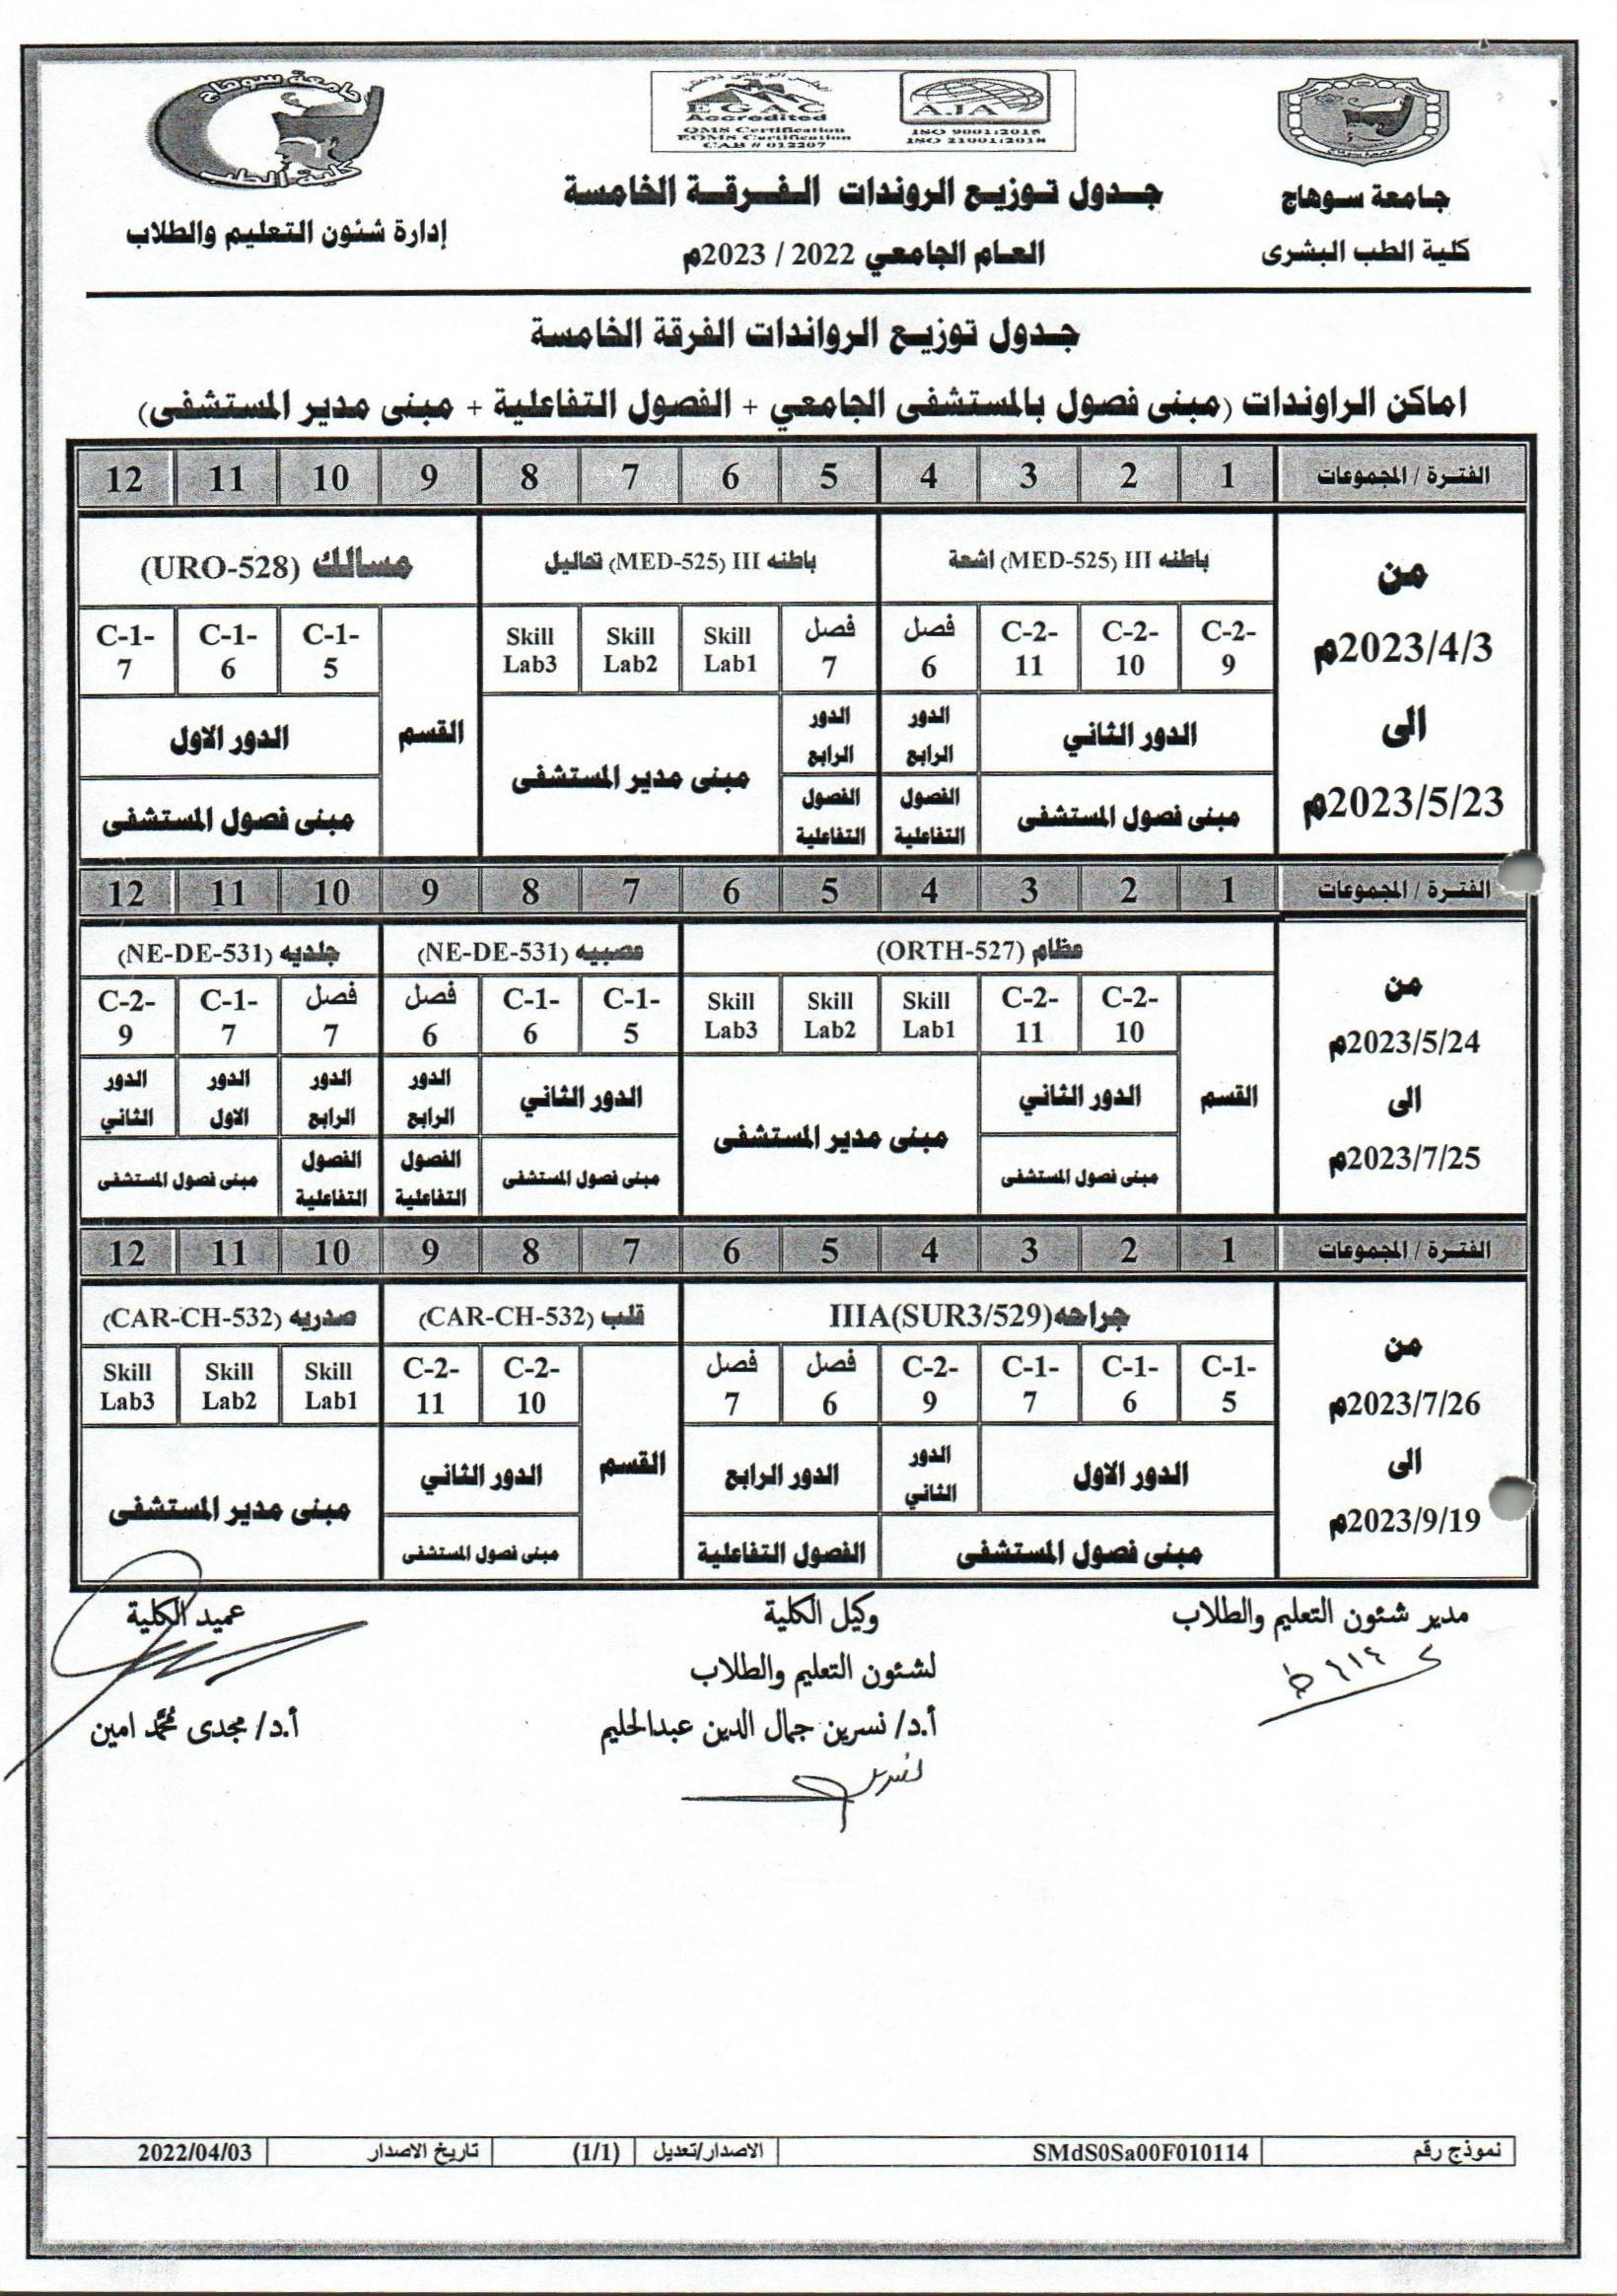 جامعة سوهاج
كلية الطب
EGAC
Accredited
QMS Certification
EOMS Certification
CAB # 012207
AJA
ISO 9001:2015
ISO 21001:2018
جامعة سوهاج
كلية الطب البشرى
جـدول تـوزيـع الرونـدات الـفـرقـة الخامـسة
العـام الجامعي 2022 / 2023م
إدارة شئون التعليم والطلاب
جـدول توزيـع الرواندات الفرقة الخامسة
اماكن الراوندات (مبنى فصول بالمستشفى الجامعي + الفصول التفاعلية + مبنى مدير المستشفى)
الفتـرة / المجموعات 1 2 3 4 5 6 7 8 9 10 11 12
من
2023/4/3م
الى
2023/5/23م
باطنه III (MED-525) اشعة
باطنه III (MED-525) تحاليل
مسالك (URO-528)
C-2-9
C-2-10
C-2-11
فصل 6
فصل 7
Skill Lab1
Skill Lab2
Skill Lab3
القسم
C-1-5
C-1-6
C-1-7
الدور الثاني
الدور الرابع
الدور الرابع
مبنى مدير المستشفى
الدور الاول
مبنى فصول المستشفى
الفصول التفاعلية
الفصول التفاعلية
مبنى فصول المستشفى
الفتـرة / المجموعات 1 2 3 4 5 6 7 8 9 10 11 12
من
2023/5/24م
الى
2023/7/25م
عظام (ORTH-527)
عصبيه (NE-DE-531)
جلديه (NE-DE-531)
القسم
C-2-10
C-2-11
Skill Lab1
Skill Lab2
Skill Lab3
C-1-5
C-1-6
فصل 6
فصل 7
C-1-7
C-2-9
الدور الثاني
مبنى مدير المستشفى
الدور الثاني
الدور الرابع
الدور الرابع
الدور الاول
الدور الثاني
مبنى فصول المستشفى
مبنى فصول المستشفى
الفصول التفاعلية
الفصول التفاعلية
مبنى فصول المستشفى
الفتـرة / المجموعات 1 2 3 4 5 6 7 8 9 10 11 12
من
2023/7/26م
الى
2023/9/19م
جراحه IIIA(SUR3/529)
قلب (CAR-CH-532)
صدريه (CAR-CH-532)
C-1-5
C-1-6
C-1-7
C-2-9
فصل 6
فصل 7
القسم
C-2-10
C-2-11
Skill Lab1
Skill Lab2
Skill Lab3
الدور الاول
الدور الثاني
الدور الرابع
الدور الثاني
مبنى مدير المستشفى
مبنى فصول المستشفى
الفصول التفاعلية
مبنى فصول المستشفى
مدير شئون التعليم والطلاب
وكيل الكلية
لشئون التعليم والطلاب
أ.د/ نسرين جمال الدين عبدالحليم
عميد الكلية
أ.د/ مجدى محمد امين
نموذج رقم SMdS0Sa00F010114 الاصدار/تعديل (1/1) تاريخ الاصدار 2022/04/03